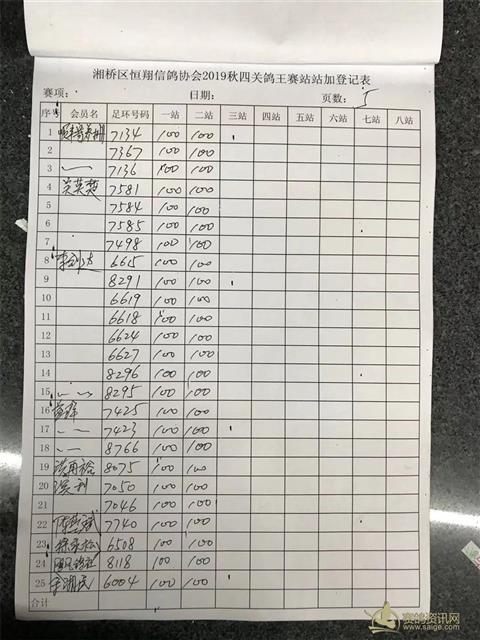 湘桥区恒翔信鸽协会2019秋四关鸽王赛站站加登记表
赛项: 日期: 页数: 5
序号 会员名 足环号码 一站 二站 三站 四站 五站 六站 七站 八站
1 7134 100 100
2 7367 100 100
3 7136 100 100
4 吴英楚 7581 100 100
5 7584 100 100
6 7585 100 100
7 7498 100 100
8 6615 100 100
9 8291 100 100
10 6619 100 100
11 6618 100 100
12 6624 100 100
13 6627 100 100
14 8296 100 100
15 8295 100 100
16 7425 100 100
17 7423 100 100
18 8766 100 100
19 8075 100 100
20 7050 100 100
21 7046 100 100
22 7740 100 100
23 6508 100 100
24 8118 100 100
25 6004 100 100
合计
赛鸽资讯网
www.saige.com